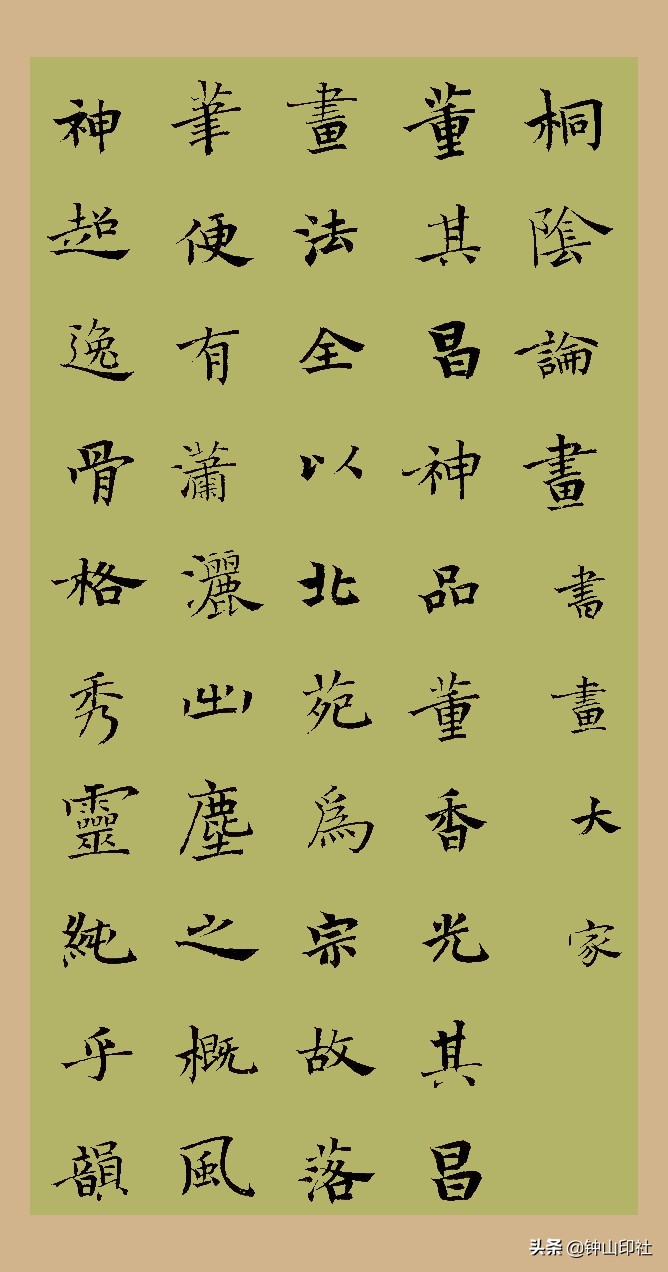 桐陰論畫書畫大家
董其昌神品董香光其昌
畫法全以北苑為宗故落
筆便有瀟灑出塵之概風
神超逸骨格秀靈純乎韻
头条 @钟山印社